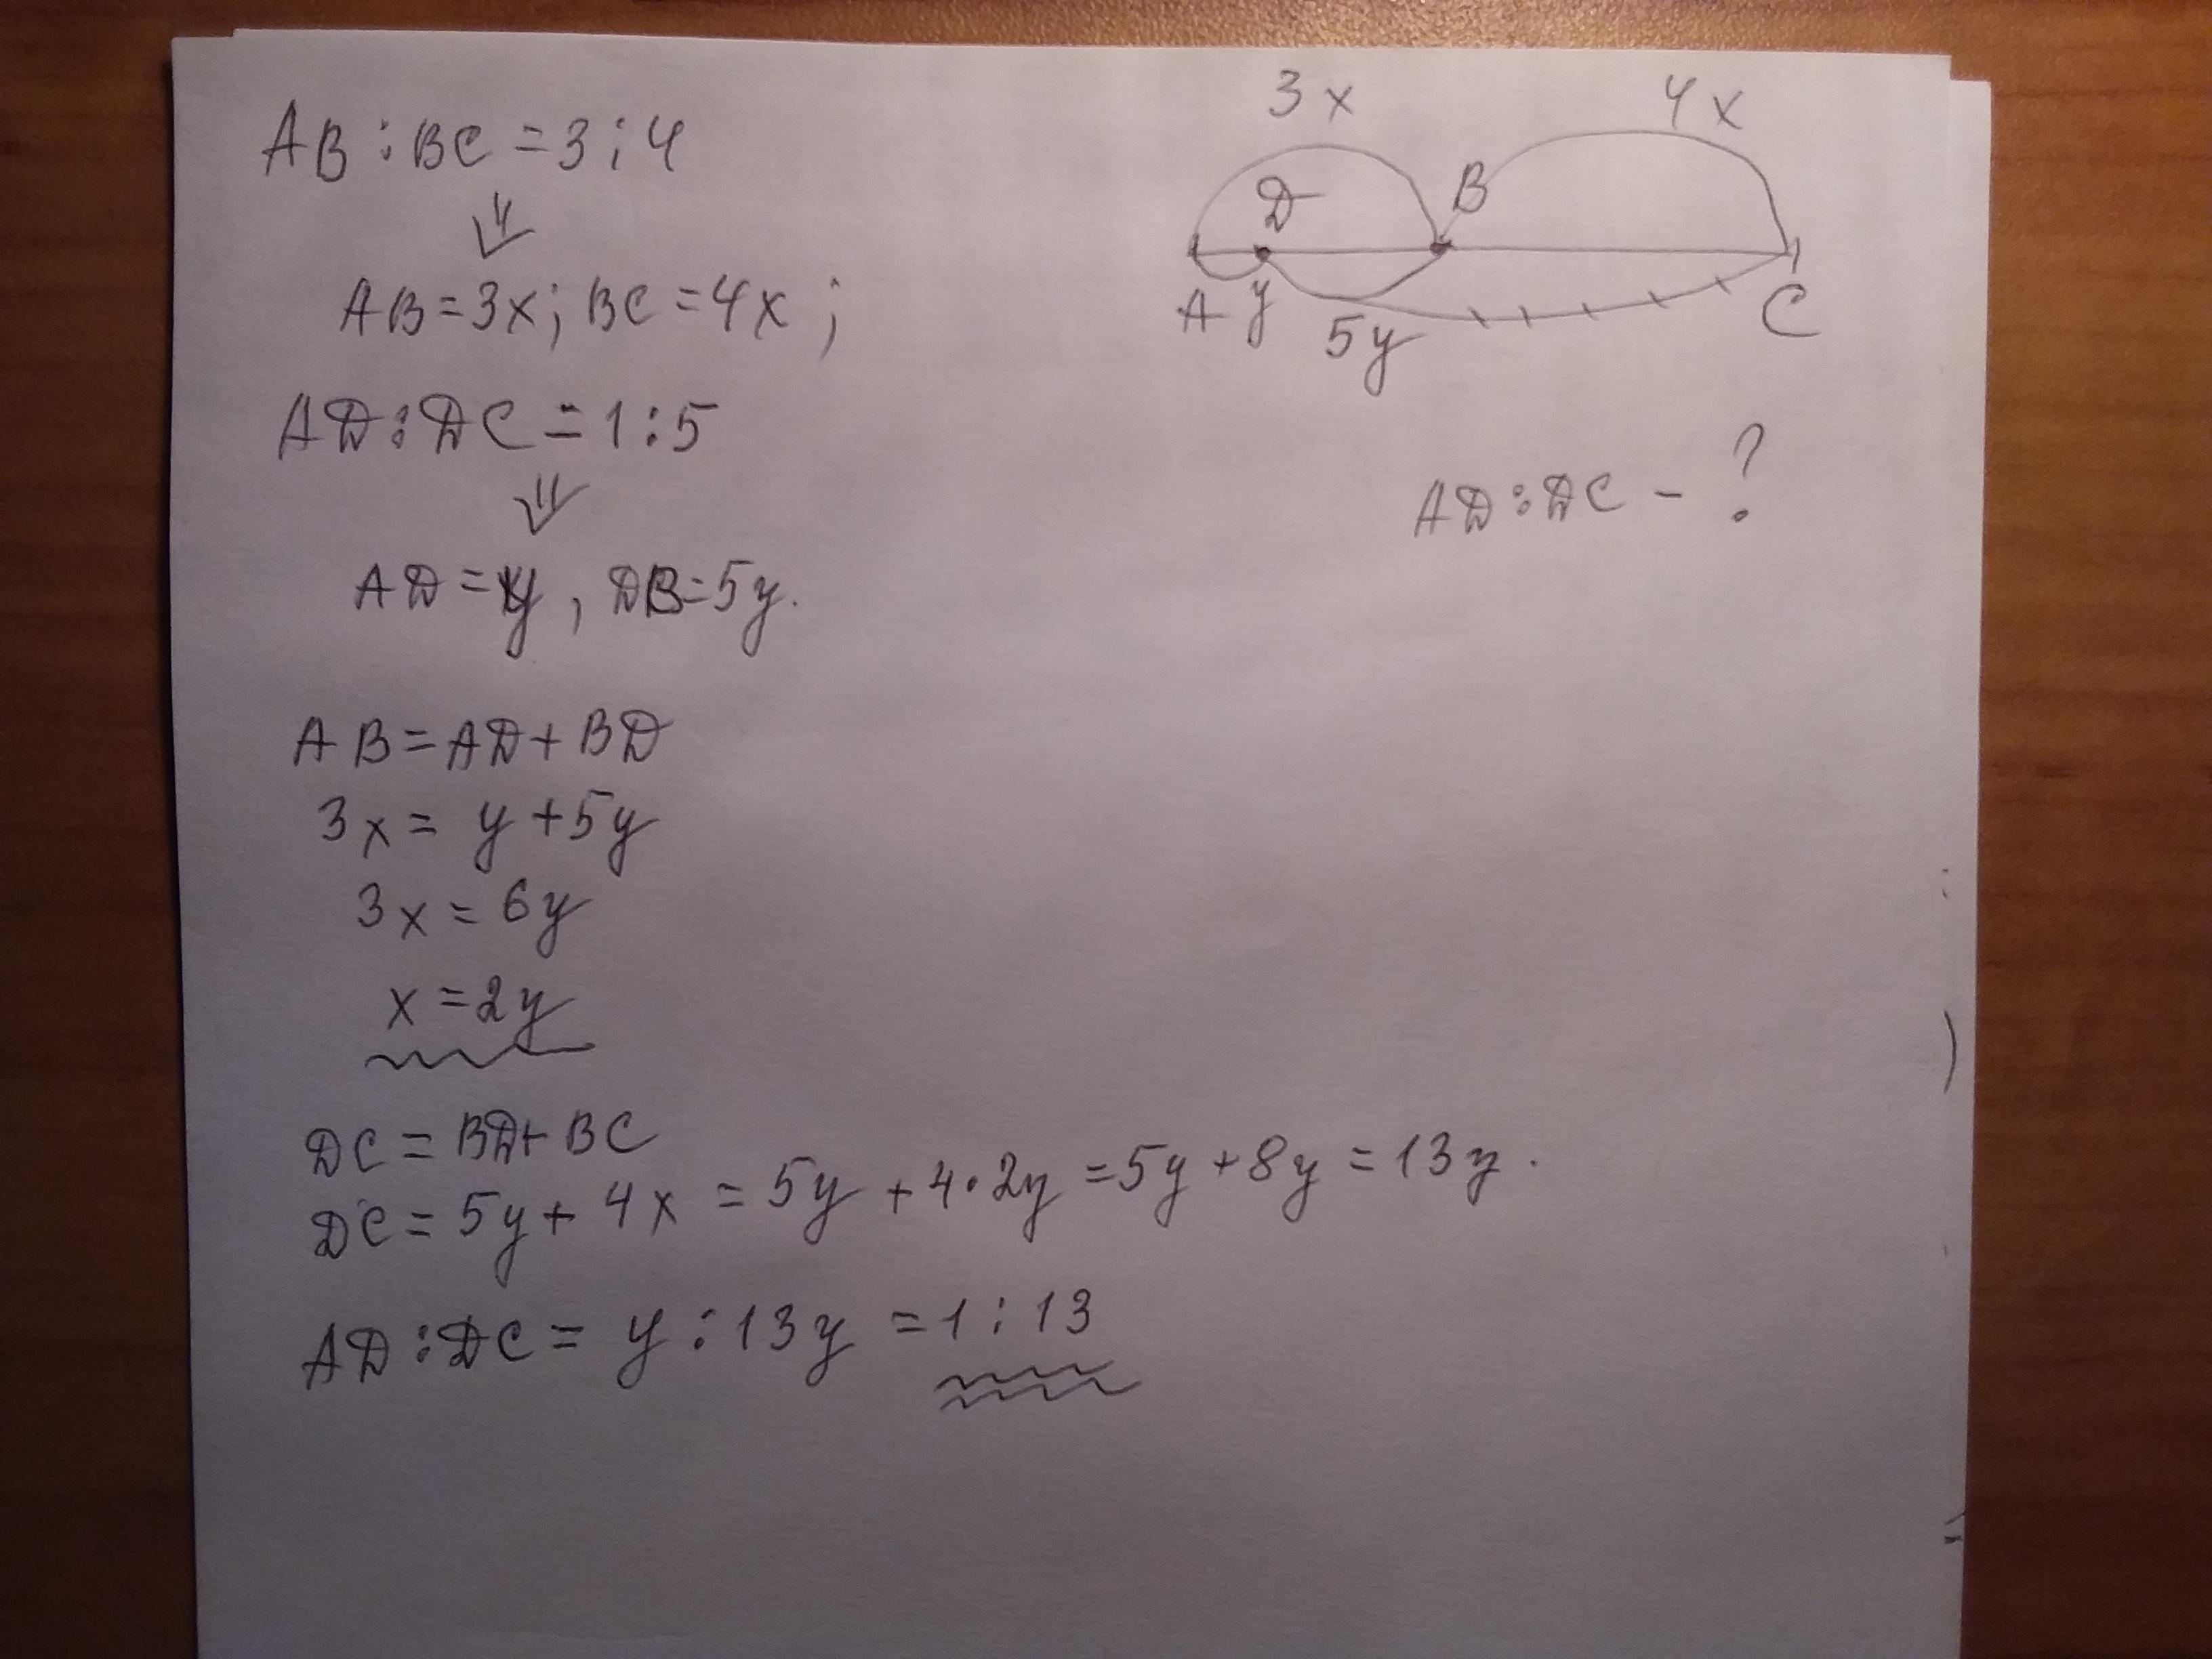 AB : BC = 3 : 4
⇓
AB = 3x; BC = 4x;
AD : DC = 1 : 5
⇓
AD = y, DB = 5y.
AB = AD + BD
3x = y + 5y
3x = 6y
x = 2y
DC = BD + BC
DC = 5y + 4x = 5y + 4·2y = 5y + 8y = 13y.
AD : DC = y : 13y = 1 : 13
3x 4x
D B
A y 5y C
AD : DC - ?